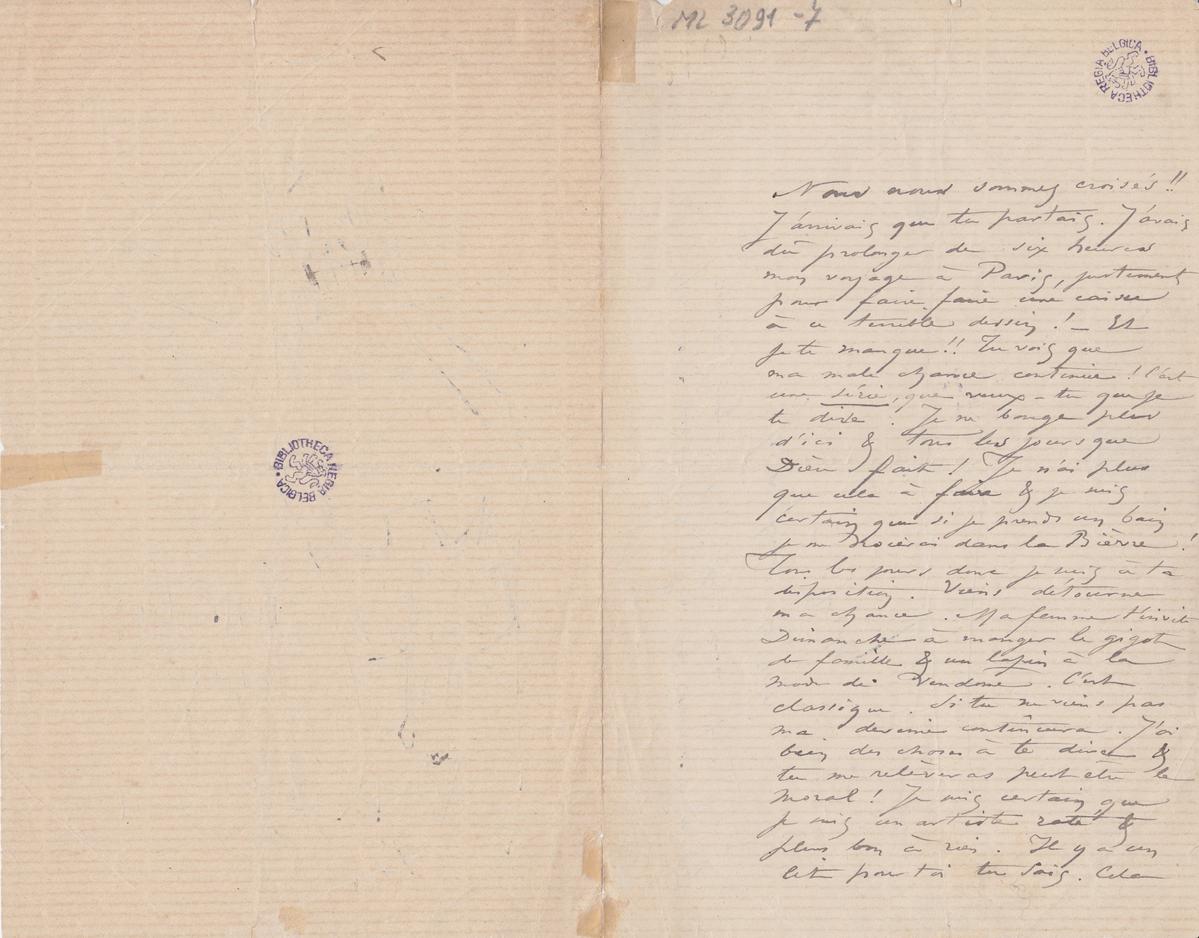 ML 3091 -7
BIBLIOTHECA REGIA BELGICA
BIBLIOTHECA REGIA BELGICA
Nous nous sommes croisés !!
J'arrivais que tu partais. J'avais
dû prolonger de six heures
mon voyage à Paris, justement
pour faire faire une caisse
à ce terrible dessin ! — Et
je te manque !! Tu vois que
ma male chance continue ! C'est
une série, que veux-tu que je
te dise. Je ne bouge plus
d'ici & tous les jours que
Dieu fait ! Je n'ai plus
que cela à faire & je suis
certain que si je prends un bain
je me noierai dans la Bièvre !
Tous les jours donc je suis à ta
disposition. Viens détourner
ma chance. Ma femme t'invite
Dimanche à manger le gigot
de famille & un lapin à la
mode de Vendôme. C'est
classique. Si tu ne viens pas
ma continuera. J'ai
bien des choses à te dire &
tu me relèveras peut être le
moral ! Je suis certain que
je suis un artiste raté &
plus bon à rien. Il y a un
lit pour toi tu sais. Cela